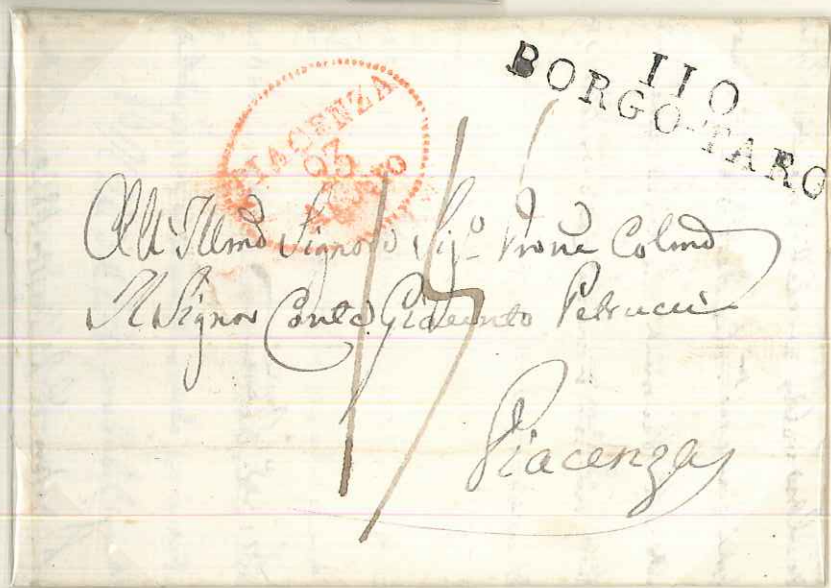 110
BORGO-TARO
PIACENZA
23
All'Illmo Signore Sigr. Prone Colmo
Il Signor Conte Giacinto Petrucci
Piacenza